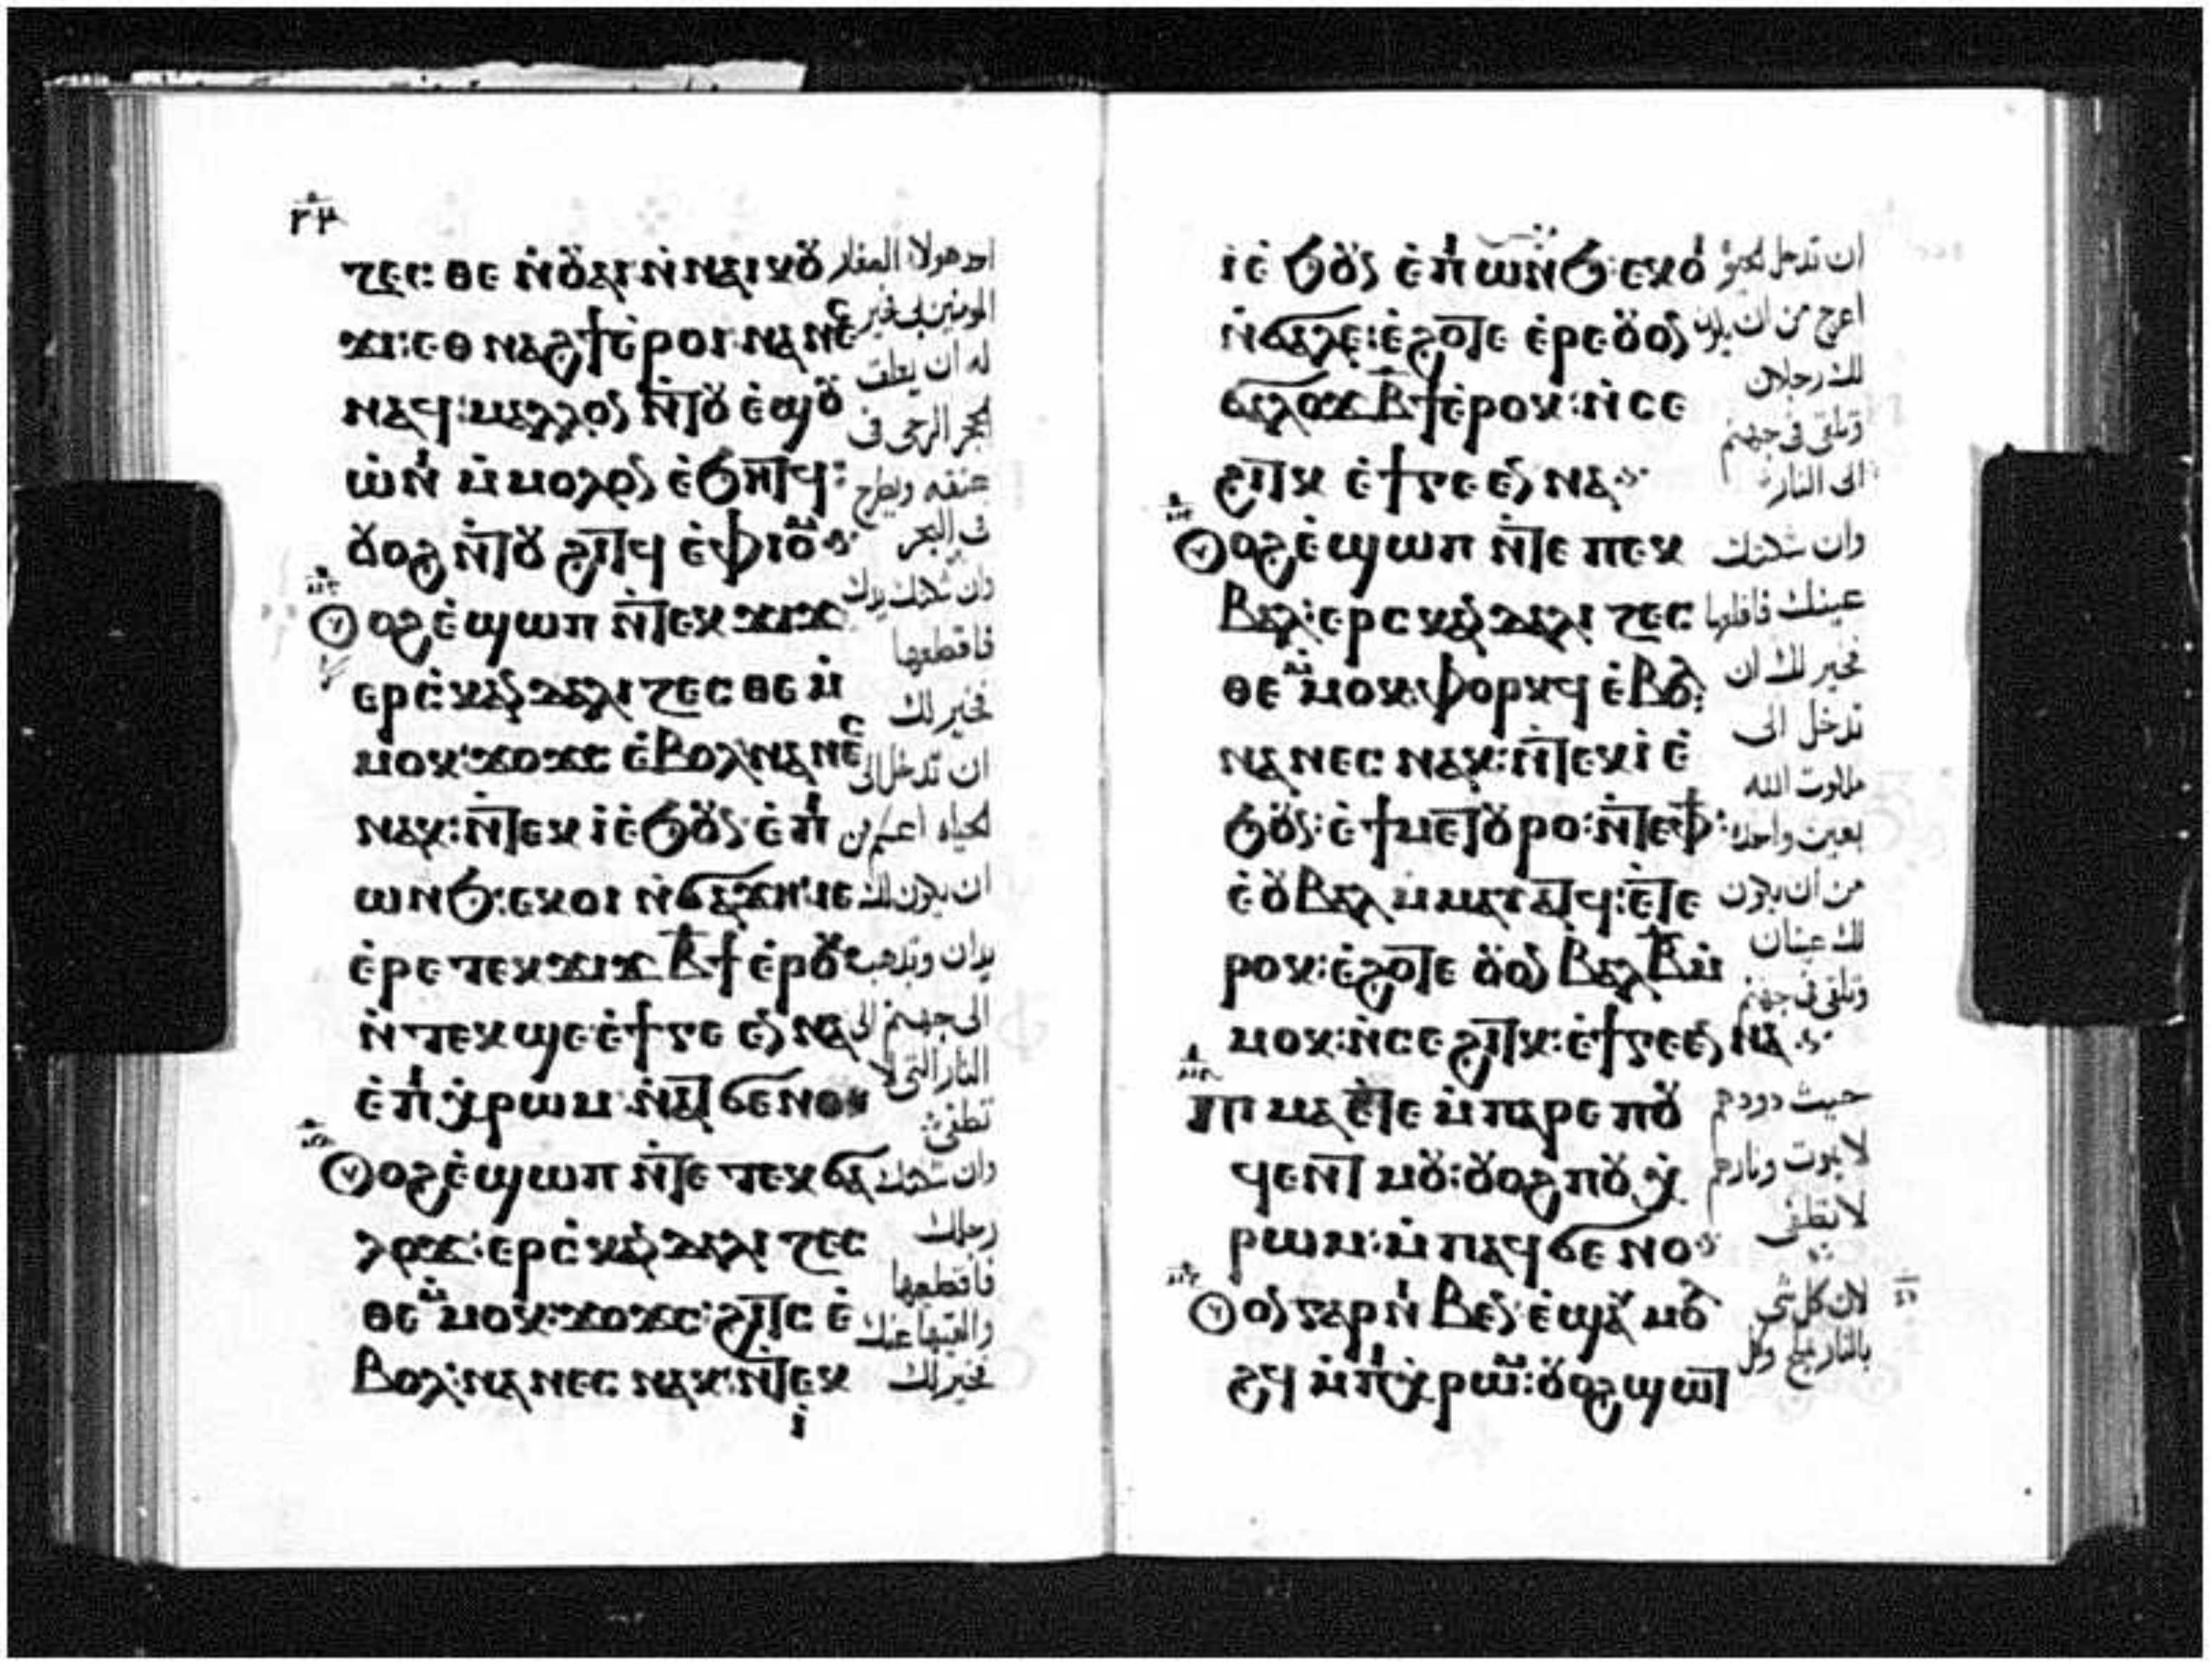 ⲧⲉⲥ ⲑⲉ ⲛ̇ⲟⲩ̈ⲁⲓ ⲛ̇ⲛⲁⲓ ⲕⲟⲩ̈
ϫⲓ: ⲉⲑⲛⲁϩϯ ⲉ̇ⲣⲟⲓ ⲛⲁⲛⲉⲥ
ⲛⲁϥ: ⲙⲁⲗⲗⲟⲛ ⲛ̇ⲧⲟⲩ ⲉ̇ϣⲟⲩ̈
ⲱ̇ⲛⲓ ⲙ̇ⲙⲟⲩⲗⲟⲛ ⲉ̇ϧⲏⲧϥ:
ⲟⲩⲟϩ ⲛ̇ⲧⲟⲩ ϩⲓⲧϥ ⲉ̇ⲫⲓⲟⲙ
ⲟⲩⲟϩ ⲉ̇ϣⲱⲡ ⲛ̇ⲧⲉⲕϫⲓϫ
ⲉⲣⲥ̇ⲕⲁⲛⲇⲁⲗⲓⲍⲉⲥⲑⲉ ⲙ̇
ⲙⲟⲕ: ϫⲟϫⲥ ⲉ̇ⲃⲟⲗ ⲛⲁⲛⲉⲥ
ⲛⲁⲕ: ⲛ̇ⲧⲉⲕⲓ̇ ⲉ̇ϧⲟⲩⲛ ⲉ̇ⲡⲓ
ⲱⲛϧ: ⲉⲕⲟⲓ ⲛ̇ϭⲁϫⲏ: ⲓⲉ
ⲉ̇ⲣⲉ ⲧⲉⲕϫⲓϫ ⲃ̅ϯ ⲉ̇ⲣⲟⲕ
ⲛ̇ⲧⲉⲕϣⲉ ⲉ̇ϯⲅⲉⲉⲛⲛⲁ
ⲉ̇ⲡⲓⲭ̇ⲣⲱⲙ ⲛ̇ⲁⲧϭⲉⲛⲟ
ⲟⲩⲟϩ ⲉ̇ϣⲱⲡ ⲛ̇ⲧⲉ ⲧⲉⲕϭⲁ
ⲗⲟϫ: ⲉⲣⲥ̇ⲕⲁⲛⲇⲁⲗⲓⲍⲉⲥ
ⲑⲉ ⲙ̇ⲙⲟⲕ: ϫⲟϫⲥ: ϩⲓⲧⲥ ⲉ̇
ⲃⲟⲗ: ⲛⲁⲛⲉⲥ ⲛⲁⲕ: ⲛ̇ⲧⲉⲕ
ⲓ̇
احد هولا الصغار
المومنين بى فخير
له ان يعلق
حجر الرحى فى
عنقه ويطرح
فى البحر
وان شككتك يدك
فاقطعها
فخير لك
ان تدخل الى
الحياه اعسم من
ان يكون لك
يدان وتذهب
الى جهنم الى
النار التى لا
تطفى
وان شككتك
رجلك
فاقطعها
والقيها عنك
فخير لك
ⲓ̇ ⲉ̇ϧⲟⲩⲛ ⲉ̇ⲡⲓⲱⲛϧ: ⲉⲕⲟⲓ
ⲛ̇ϭⲁⲗⲉ: ⲉ̇ϩⲟⲧⲉ ⲉ̇ⲣⲉ ⲟⲩⲟⲛ
ϭⲁⲗⲟϫ ⲃ̅ϯ ⲉ̇ⲣⲟⲕ: ⲛ̇ⲥⲉ
ϩⲓⲧⲕ ⲉ̇ϯⲅⲉⲉⲛⲛⲁ
ⲟⲩⲟϩ ⲉ̇ϣⲱⲡ ⲛ̇ⲧⲉ ⲡⲉⲕ
ⲃⲁⲗ: ⲉⲣⲥⲕⲁⲛⲇⲁⲗⲓⲍⲉⲥ
ⲑⲉ ⲙ̇ⲙⲟⲕ: ⲫⲟⲣⲕϥ ⲉ̇ⲃⲟⲗ:
ⲛⲁⲛⲉⲥ ⲛⲁⲕ: ⲛ̇ⲧⲉⲕⲓ̇ ⲉ̇
ϧⲟⲩⲛ: ⲉ̇ϯⲙⲉⲧⲟⲩⲣⲟ: ⲛ̇ⲧⲉⲫϯ:
ⲉ̇ⲟⲩⲃⲁⲗ ⲙ̇ⲙⲁⲩⲁⲧϥ: ⲉ̇ⲧⲉ
ⲣⲟⲕ: ⲉ̇ϩⲟⲧⲉ ⲟⲩⲟⲛ ⲃⲁⲗ ⲃ̅ ⲙ̇
ⲙⲟⲕ: ⲛ̇ⲥⲉϩⲓⲧⲕ: ⲉ̇ϯⲅⲉⲉⲛⲛⲁ
ⲡⲓⲙⲁ ⲉ̇ⲧⲉ ⲙ̇ⲡⲁⲣⲉ ⲡⲟⲩ
ϥⲉⲛⲧ ⲙⲟⲩ: ⲟⲩⲟϩ ⲡⲟⲩⲭ̇
ⲣⲱⲙ: ⲙ̇ⲡⲁϥϭⲉⲛⲟ
ⲟⲩⲟⲛ ⲅⲁⲣ ⲛⲓⲃⲉⲛ ⲉ̇ϣⲁⲩ ⲙⲟⲗ
ϩϥ ⲙ̇ⲡⲓⲭ̇ⲣⲱⲙ: ⲟⲩⲟϩ ϣⲱⲧ
ان تدخل الحيوه
اعرج من ان يكون
لك رجلان
وتلقى فى جهنم
الى النار
وان شككتك
عينك فاقلعها
فخير لك ان
تدخل الى
ملكوت الله
بعين واحده
من ان يكون
لك عينان
وتلقى فى جهنم
حيث دودهم
لا يموت ونارهم
لا تطفى
لان كل شى
بالنار يملح وكل